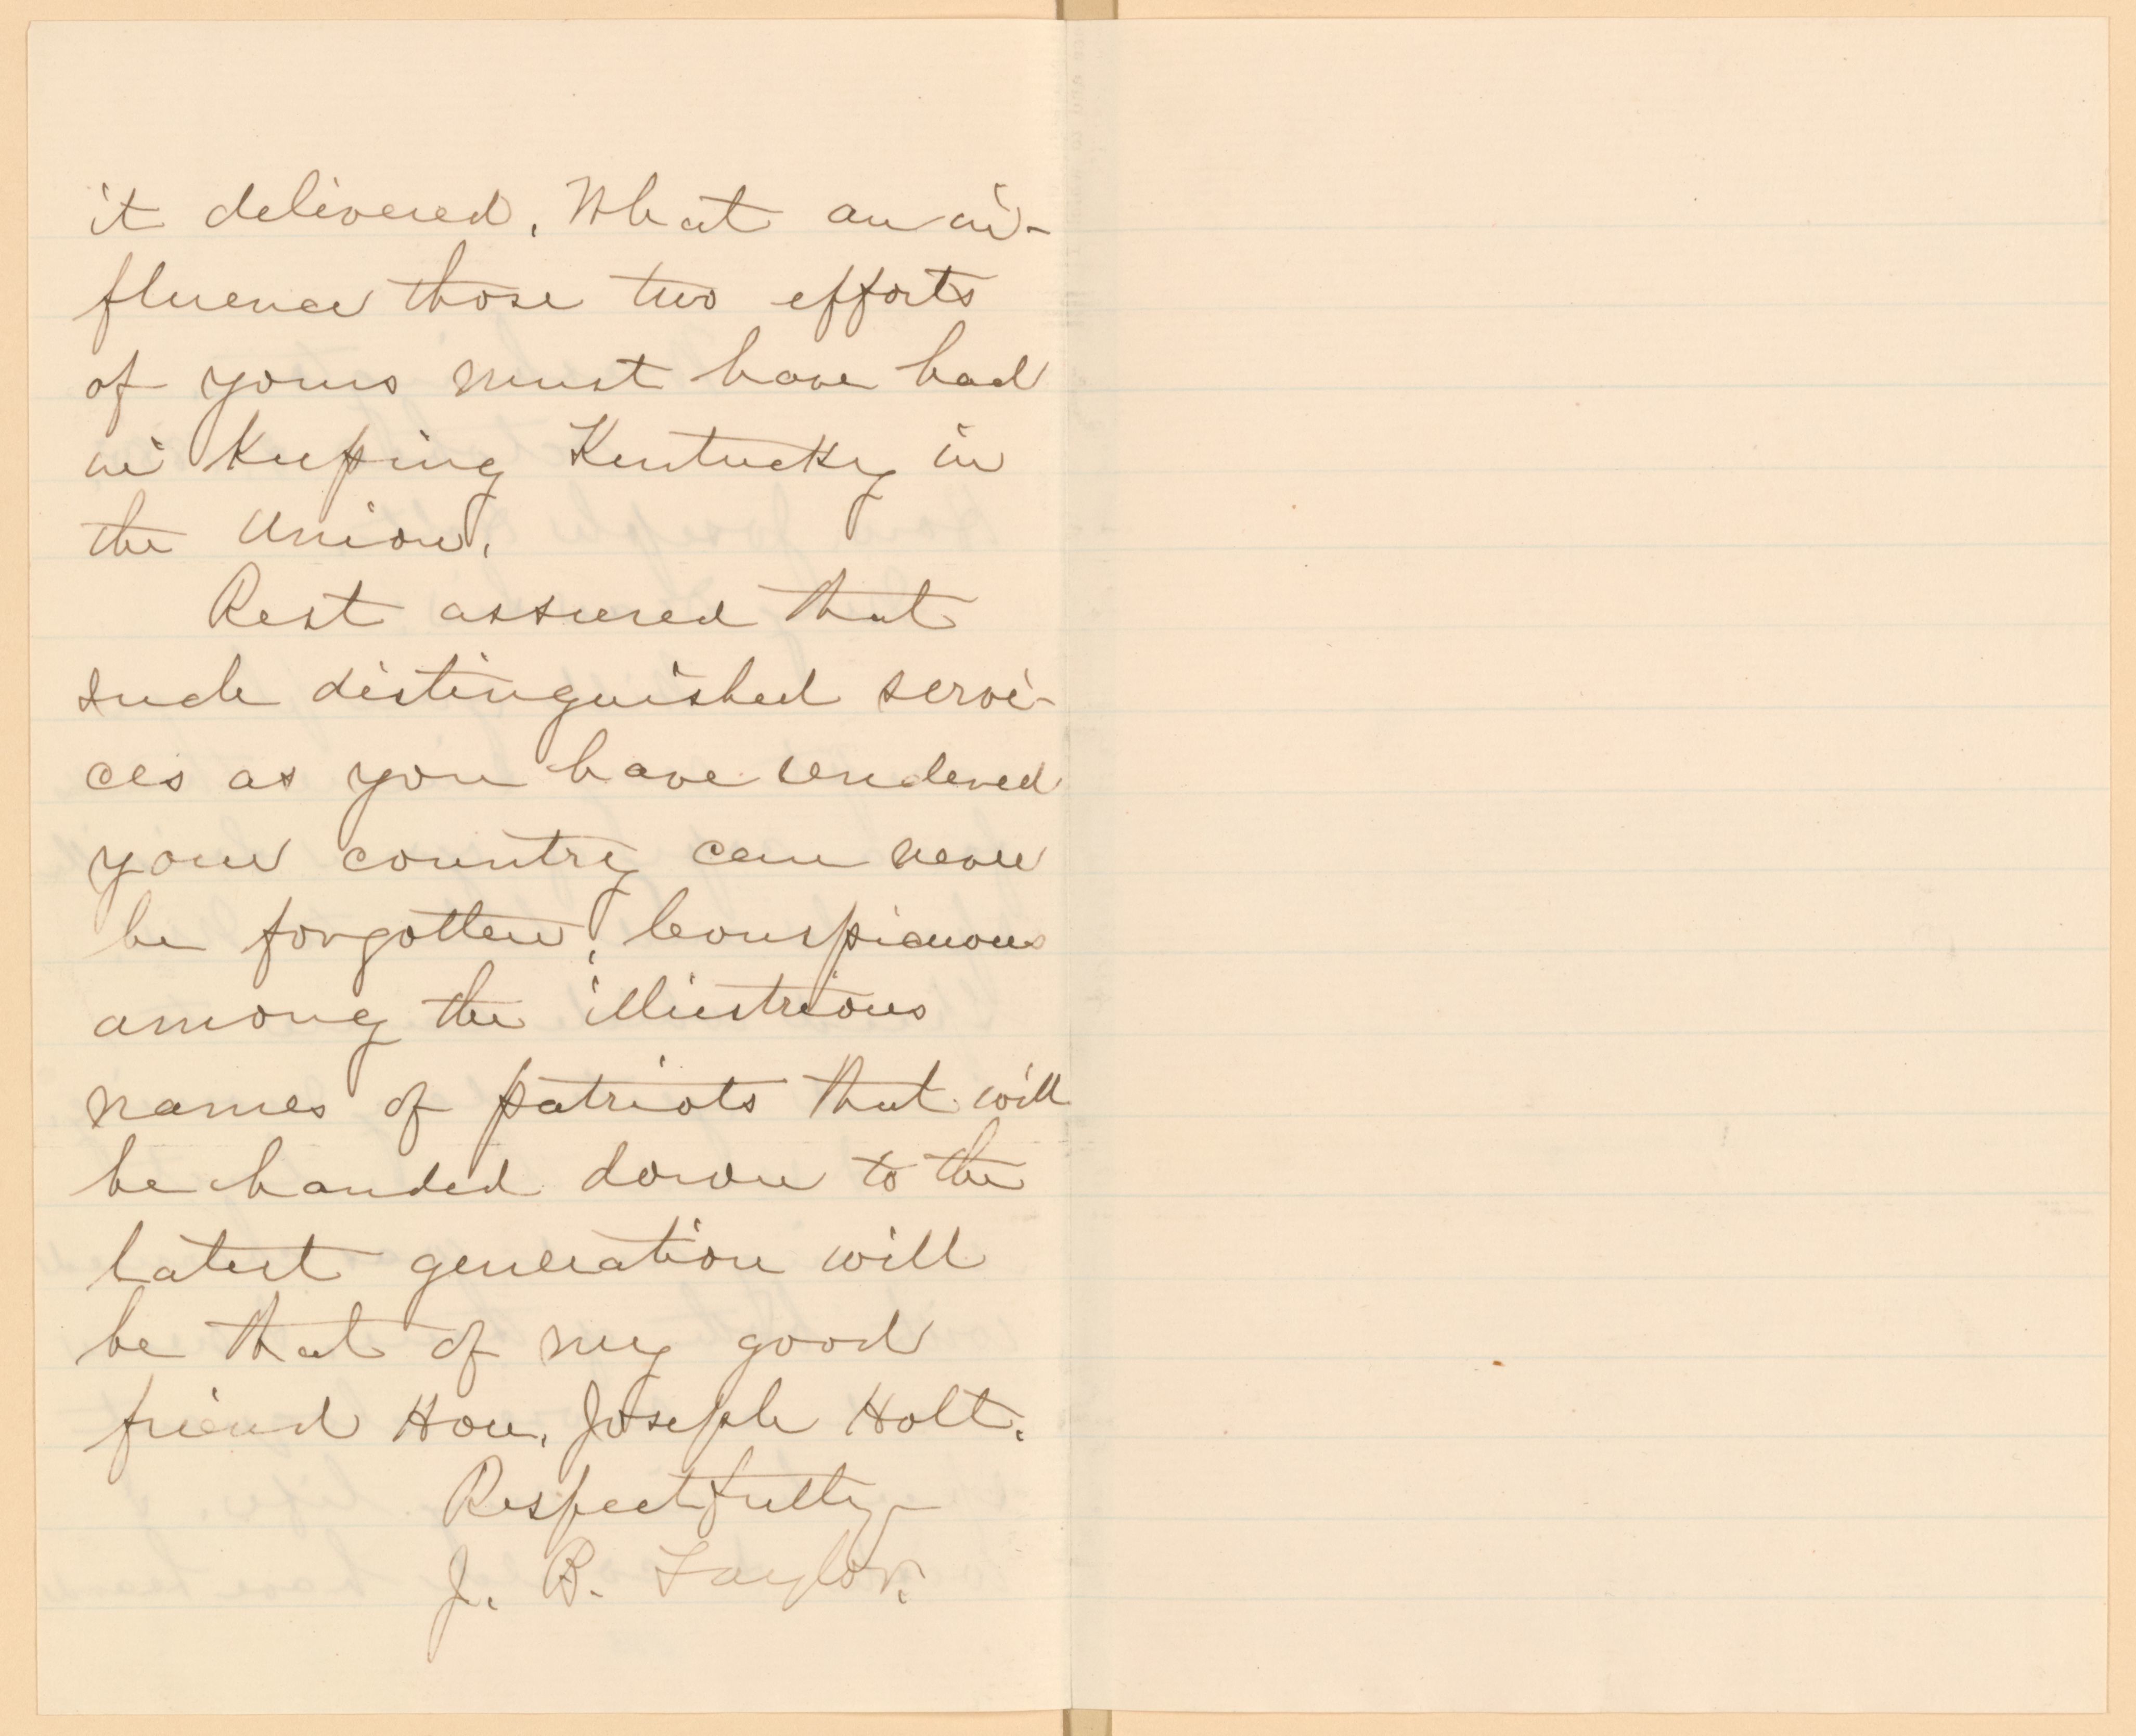 it delivered. What an in-
fluence those two efforts
of yours must have had
in keeping Kentucky in
the Union.
Rest assured that
such distinguished servi-
ces as you have rendered
your country can never
be forgotten. Conspicuous
among the illustrious
names of patriots that will
be handed down to the
latest generation will
be that of my good
friend Hon. Joseph Holt.
Respectfully
J. B. Taylor.